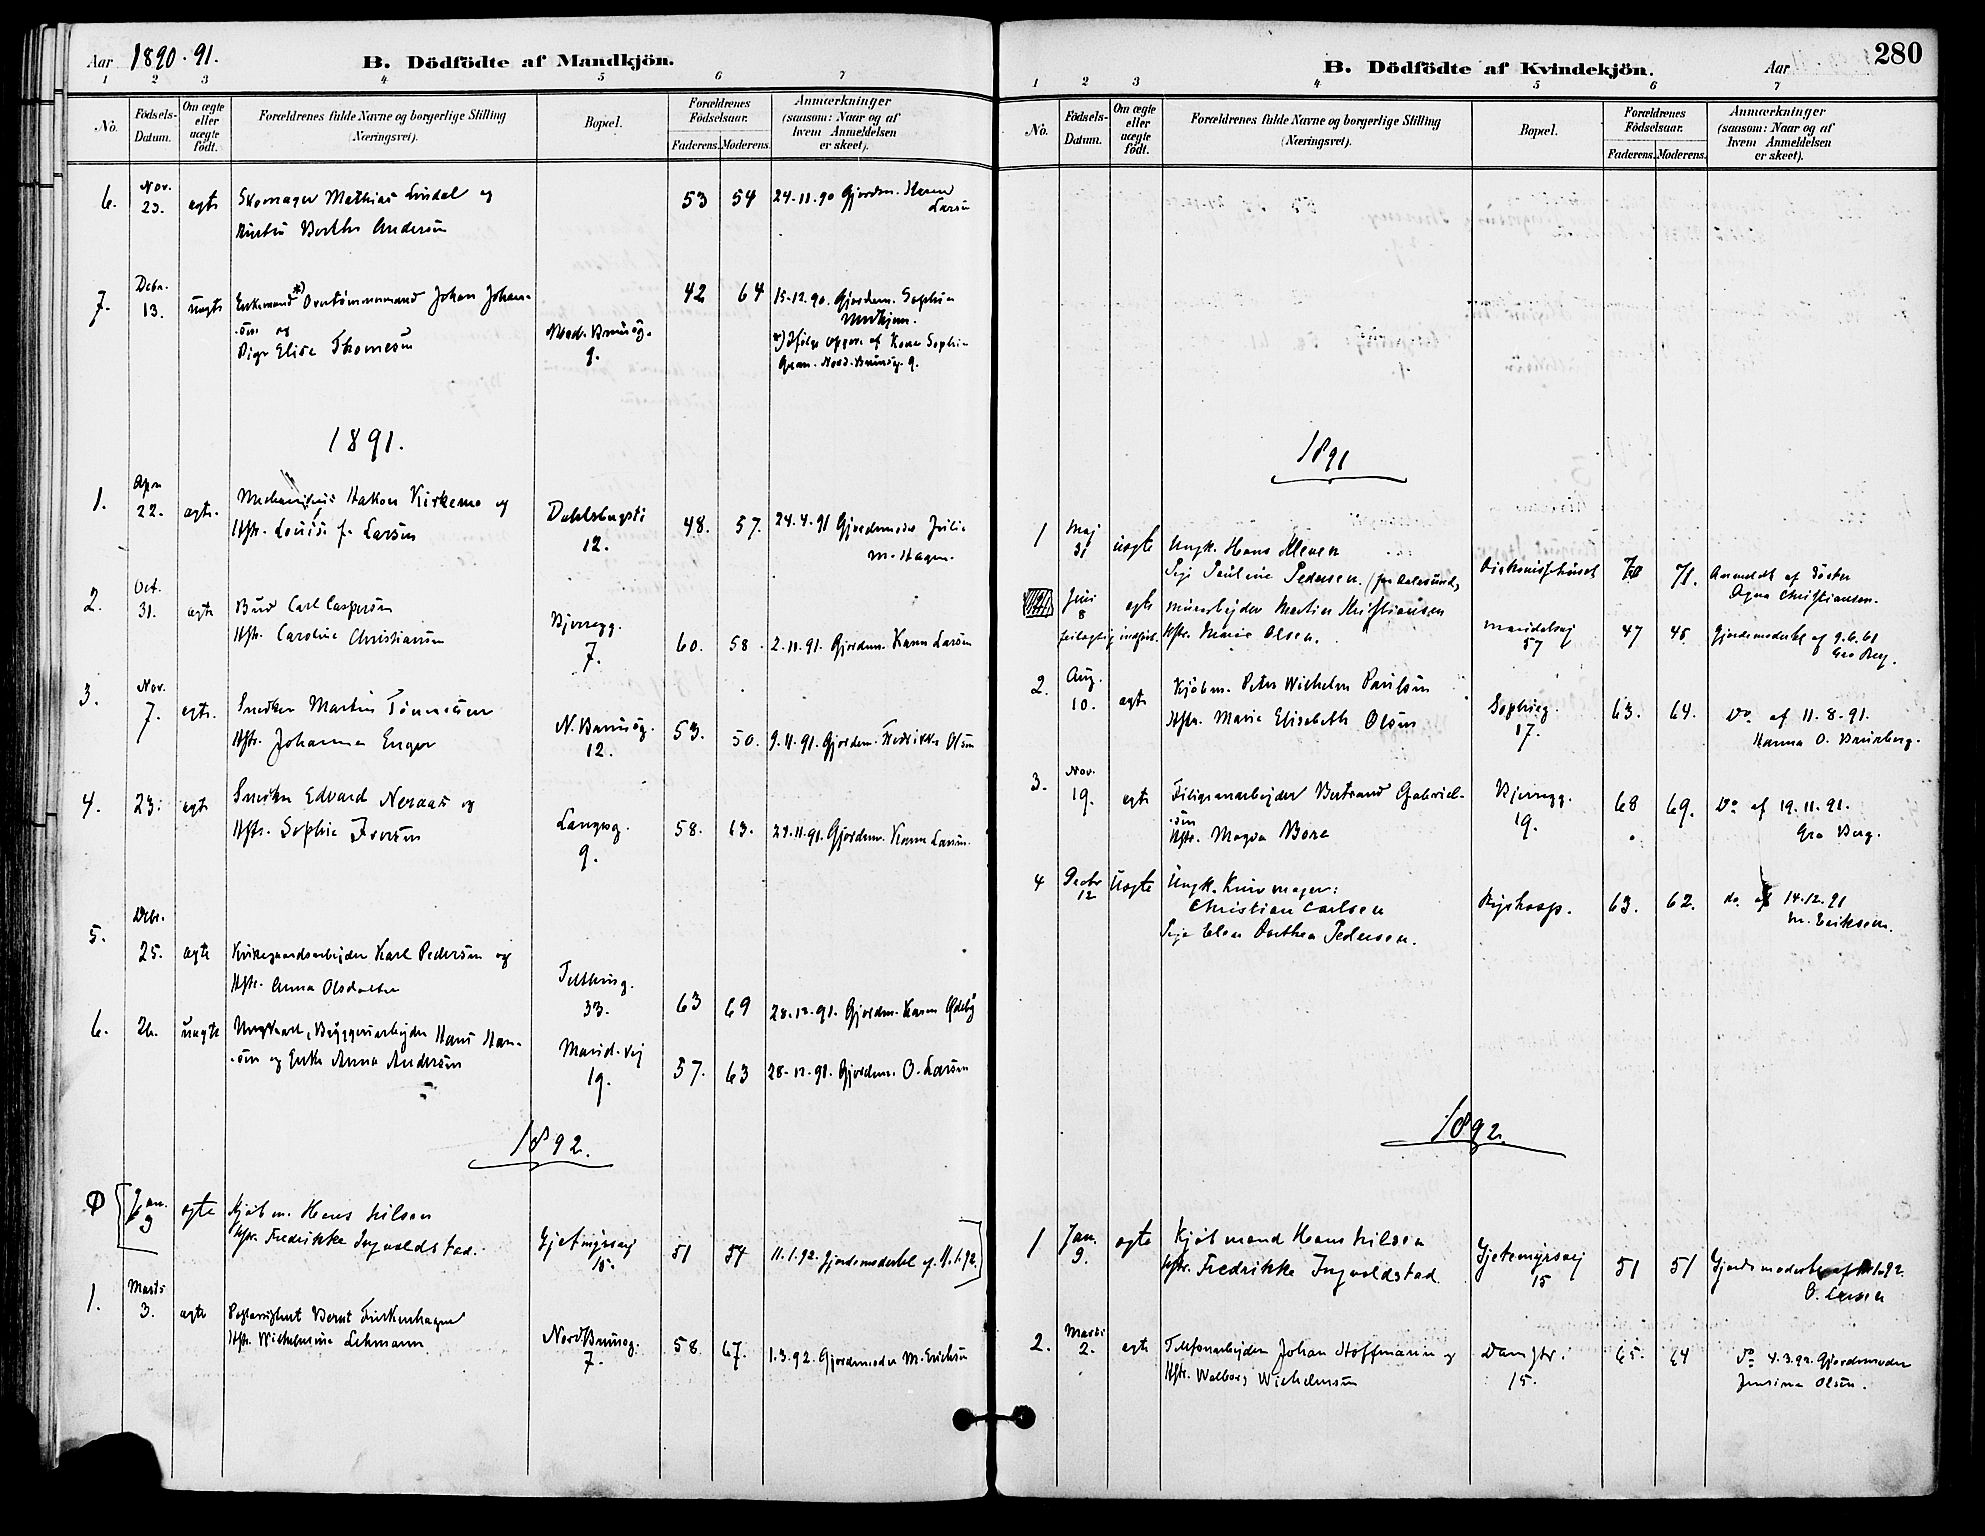 Aar 1890-91.
B. Dödfödte af Mandkjön.
1 2 3 4 5 6 7
No.
Födsels-Datum.
Om ægte eller uægte födt.
Forældrenes fulde Navne og borgerlige Stilling (Næringsvei).
Bopæl.
Forældrenes Födselsaar.
Faderens. Moderens.
Anmærkninger (saasom: Naar og af hvem Anmeldelsen er skeet).
6. Nov. 23. ægte Skomager Mathias Lindal og
Hustru Berthe Andersen
53 54 24-11-90 Gjordem. Karen
Larsen
7. Debr. 13. uægte Enkemand *) Overtömmermand Johan Johan-
sen og
Pige Elise Thomesen
Nord. Brunsög.
9.
42 64 15-12-90. Gjordem. Sophie
*) Ifölge opgave af Kone Sophie
Gran. Nord. Brunsög. 9.
1891.
1. Apr. 22. ægte. Hakon Kirkemo og
Hstr. Louise f. Larsen
Dahlsbergsti
12.
48. 57. 24-4-91 Gjordemoder Julie
M. Hagen.
2. Oct. 31. ægte Carl Caspersen
Hstr. Caroline Christiansen
Bjerregg.
7.
60. 58. 2-11-91. Gjordem. Karen Larsen
3. Nov. 7. ægte. Snedker Martin Tönnesen
Hstr. Johanna Enger
N. Brunsög.
12.
53. 50. 9-11-91. Gjordem. Fredrikke Olsen
4. 23. ægte Snedker Edvard Neraas og
Hstr. Sophie Iversen
Langesg.
9.
58. 63. 24-11-91. Gjordem. Karen Larsen.
5. Debr. 25. ægte Kirkegaardsarbejder Karl Pedersen og
Hstr. Anna Olsdatter
Telthusg.
33.
63 69 28-12-91. Gjordem. Karen Ödeby
6. 26. uægte Ungkarl, Byggeriarbejder Hans Han-
sen og Enke Anna Andersen
Marid. vej
19.
57. 63 28-12-91. Gjordem. O. Larsen
1892.
Jan. 9 ægte Kjöbm. Hans Nilsen
Hstr. Fredrikke Ingvoldstad.
Gjetmyrsvej
15.
51 54 11-1-92. Gjordemoderbel. af 11.1.92.
1. Marts 3. ægte Bernt Finkenhagen
Hstr. Wilhelmine Lehmann
Nord. Brunsog.
7.
58. 67. 1.3.92. Gjordemoder M. Eriksen
280
B. Dödfödte af Kvindekjön.
Aar
1 2 3 4 5 6 7
No.
Födsels-Datum.
Om ægte eller uægte födt.
Forældrenes fulde Navne og borgerlige Stilling (Næringsvei).
Bopæl.
Forældrenes Födselsaar.
Faderens. Moderens.
Anmærkninger (saasom: Naar og af hvem Anmeldelsen er skeet).
1891
1 Maj 31 uægte Ungk. Hans Kleven
Pige Pauline Pedersen. (fra Aalesund)
Diakonissehuset
70 71. Anmeldt af Söster
Agna Christiansen.
Juni 8 ægte Murarbejder Martin Kristiansen
feilagtig indfört. Hstr. Marie Olsen.
Maridalsvej
57
47 45 Gjordemoderbel. af 9.6.91
Gro Berg.
2. Aug. 10. ægte Kjöbm. Peter Wilhelm Paulsen
Hstr. Marie Elisabeth Olsen
Sophieg.
17.
63. 64. Do af 11-8-91.
Hanna O. Brunberg.
3. Nov. 19. ægte Filigranarbejder Bertrand Gabriel-
sen
Hstr. Magda Bore
Bjerregg.
19.
68 69. Do af 19.11.91.
Gro Berg.
4 Decbr 12 Uægte Ungk. Kurvmager:
Christian Carlsen
Pige Elen Dorthea Pedersen.
Rigshosp.
63. 62. do. af 14.12.91
M. Eriksen.
1892.
1 Jan. 9. ægte Kjöbmand Hans Nilsen
Hstr. Fredrikke Ingvoldstad
Gjetemyrsvej
15
51 51 Gjordemoderbel. af 11.1.92.
O. Larsen
2. Marts 2. ægte Telefonarbejder Johan Hoffmann og
Hstr. Walborg Wilhelmsen
Damstr.
15.
65. 64 Do 4.3.92. Gjordemoder
Jensine Olsen.